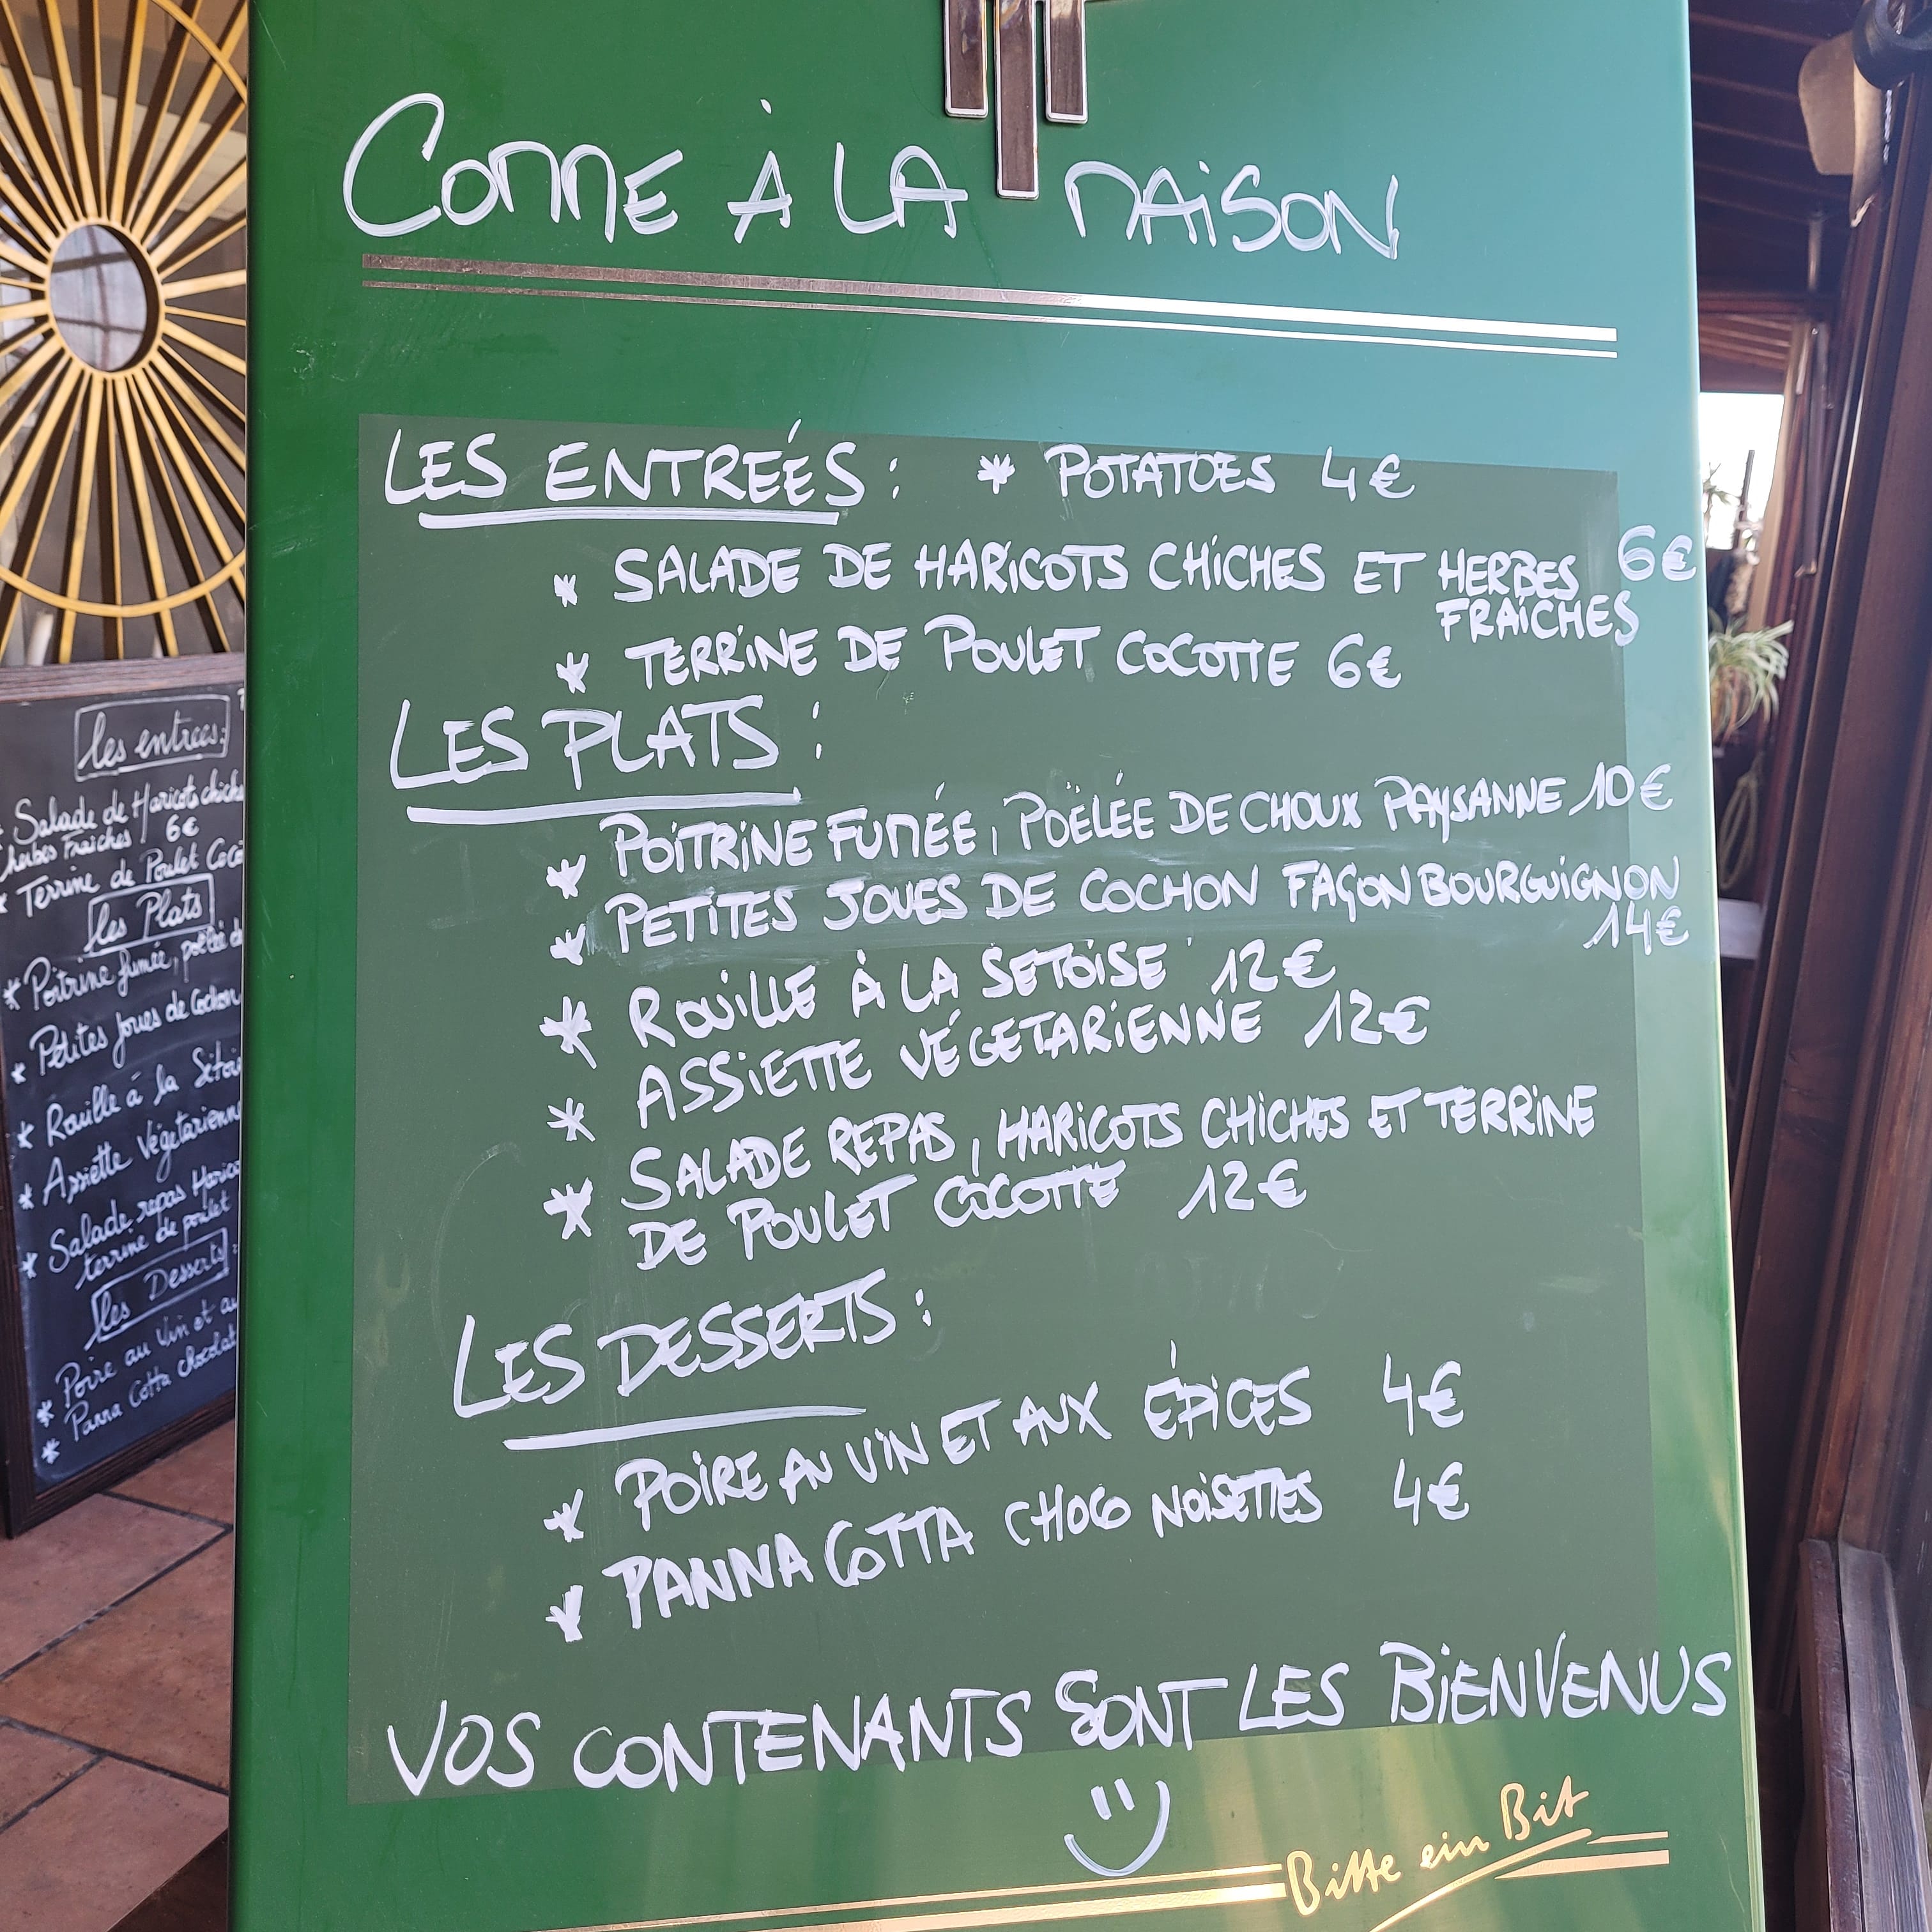 COMME À LA MAISON
LES ENTREÉS : * POTATOES 4€
* SALADE DE HARICOTS CHICHES ET HERBES 6€
FRAÎCHES
* TERRINE DE POULET COCOTTE 6€
LES PLATS :
* POITRINE FUMÉE, POËLÉE DE CHOUX PAYSANNE 10€
* PETITES JOUES DE COCHON FAÇON BOURGUIGNON
14€
* ROUILLE À LA SETOISE 12€
* ASSIETTE VÉGETARIENNE 12€
* SALADE REPAS, HARICOTS CHICHES ET TERRINE
DE POULET COCOTTE 12€
LES DESSERTS :
* POIRE AU VIN ET AUX ÉPICES 4€
* PANNA COTTA CHOCO NOISETTES 4€
VOS CONTENANTS SONT LES BIENVENUS
Bitte ein Bit
les entrees :
Salade de Haricots
herbes Fraîches 6€
* Terrine de Poulet
les Plats
* Poitrine fumée, poëlée
* Petites Joues de Cochon
* Rouille à la
* Assiette Végetarienne
* Salade repas
terrine de poulet
les Desserts :
* Poire au Vin et
* Panna Cotta chocolat